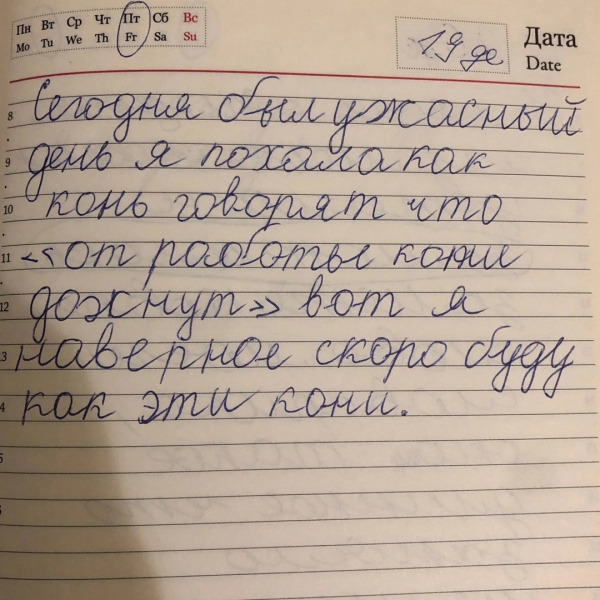 Пн Вт Ср Чт Пт Сб Вс
Mo Tu We Th Fr Sa Su
19 де
Дата
Date
8 Сегодня был ужасный
9 день я похала как
10 конь говорят что
11 «от работы кони
12 дохнут» вот я
13 наверное скоро буду
4 как эти кони.